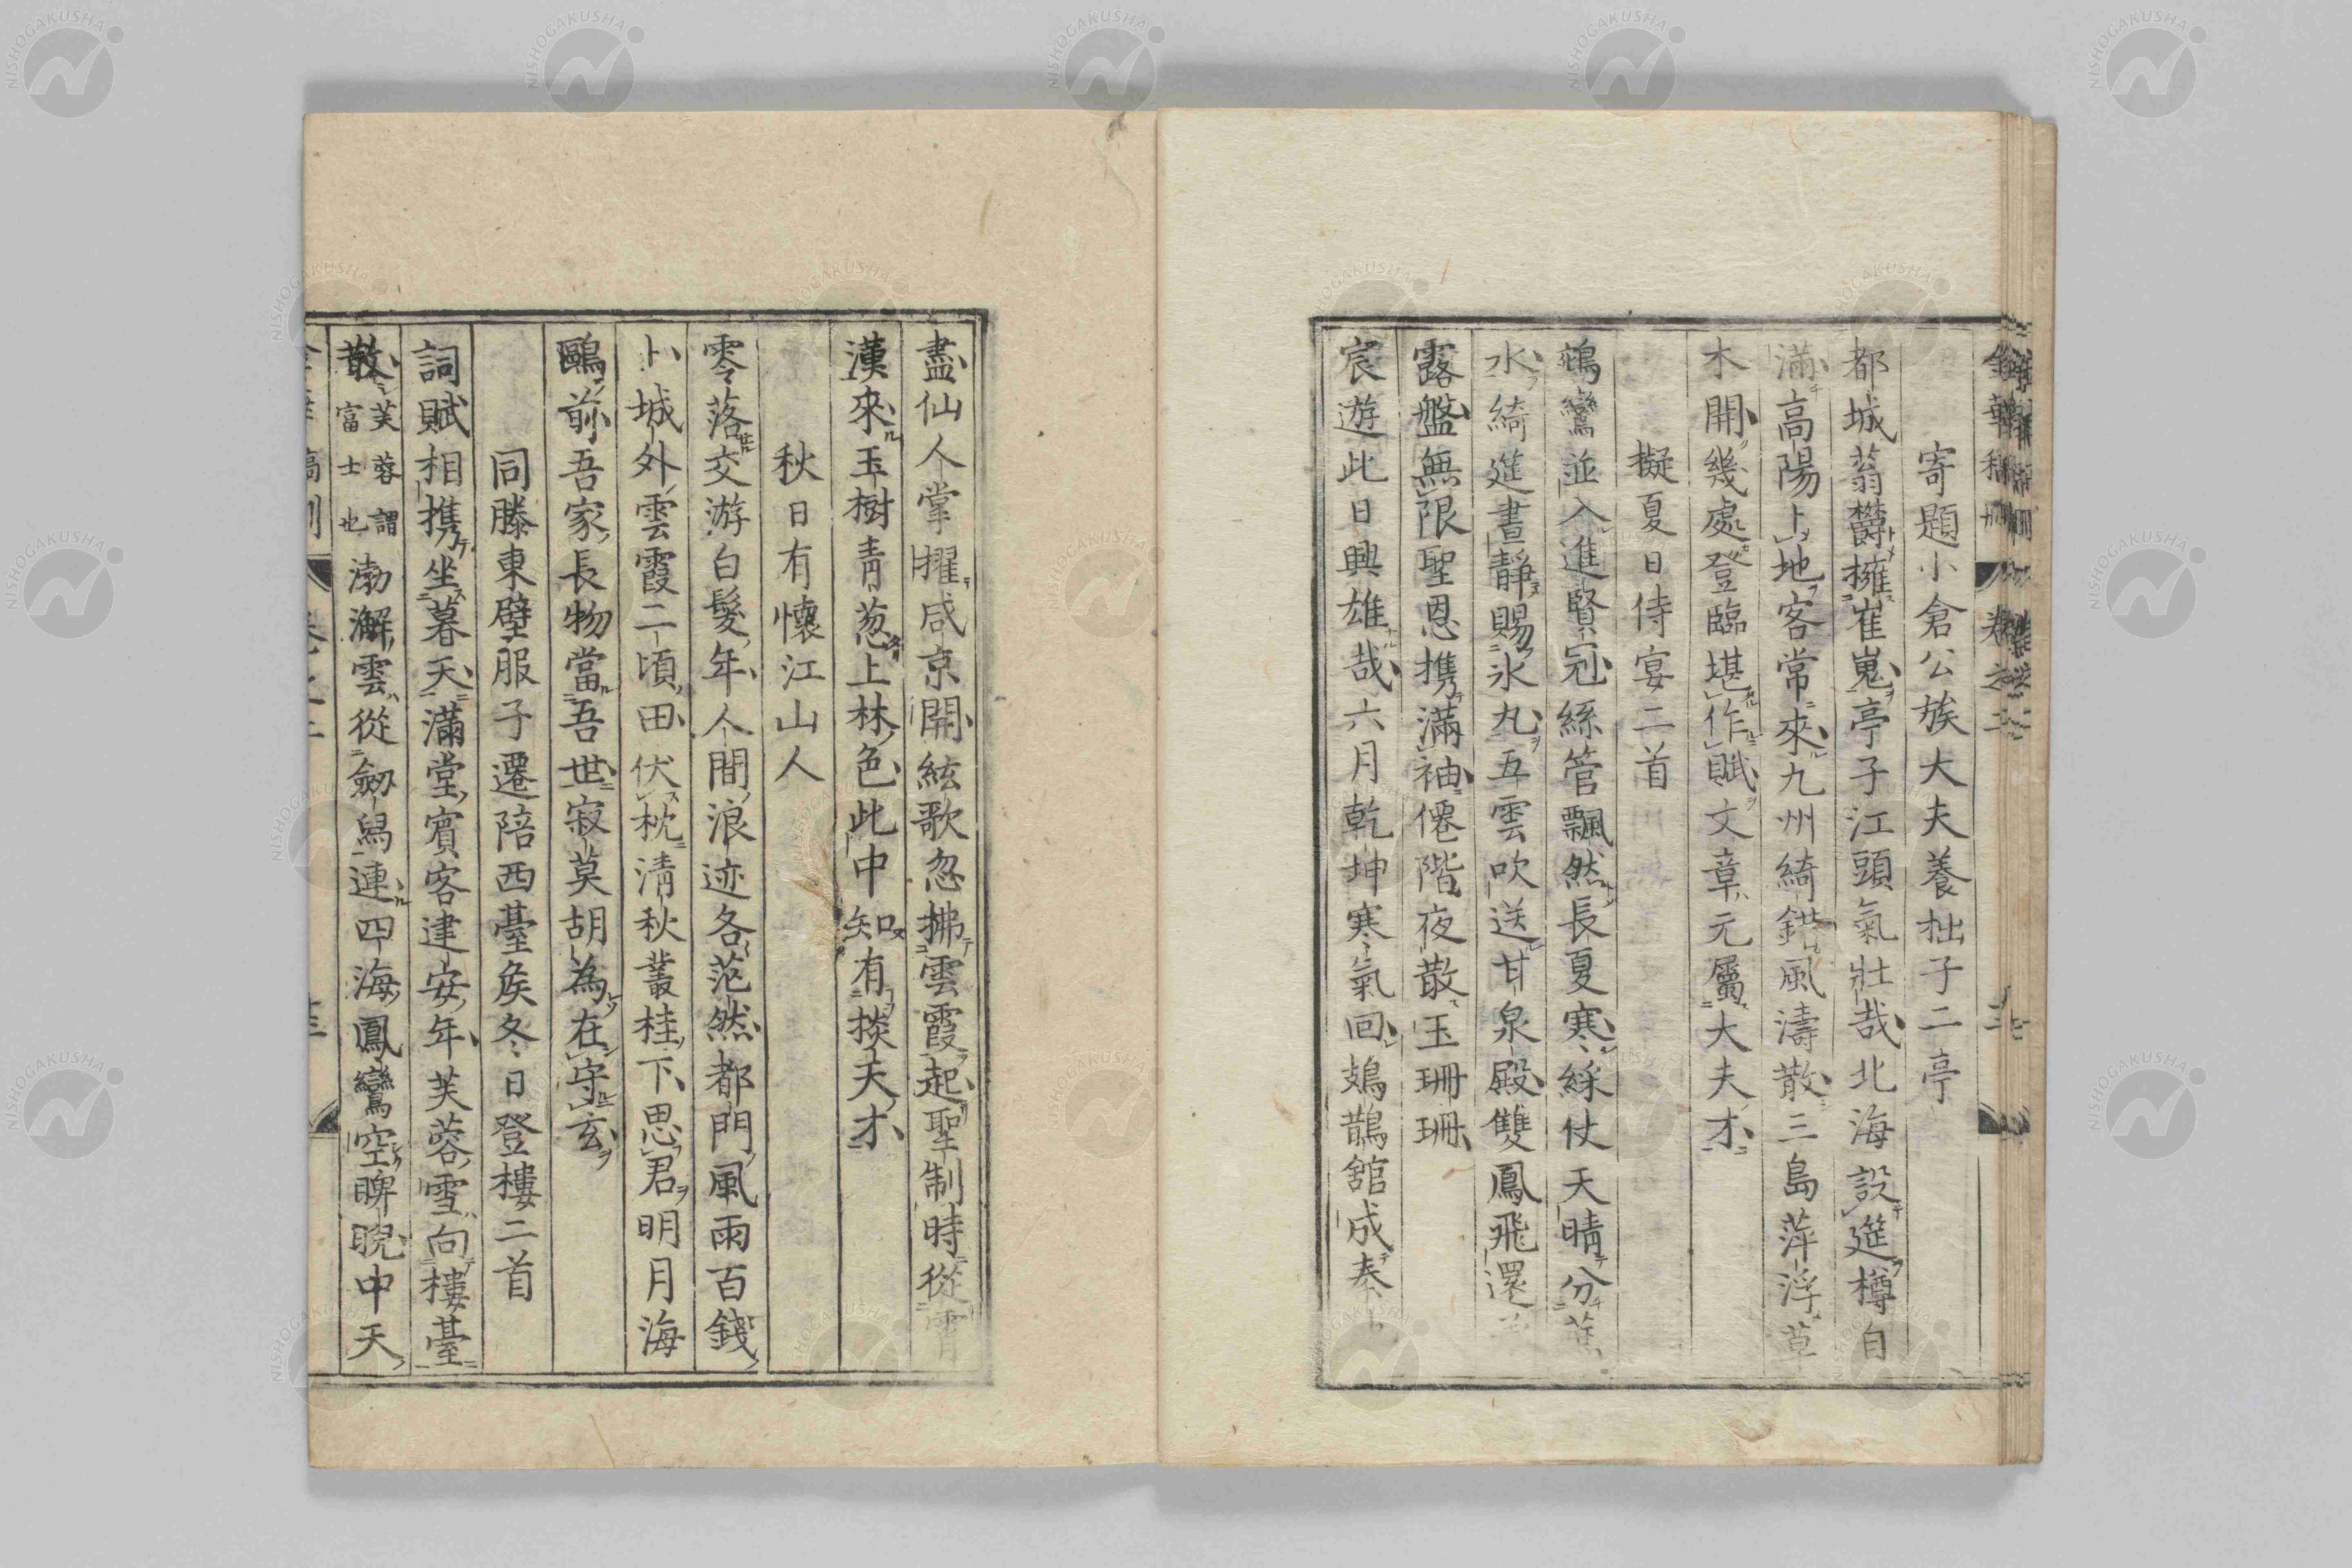 寄題小倉公族大夫養拙子二亭
都城蓊欝擁崔嵬亭子江頭氣壯哉北海設筵樽自
滿高陽上地客常來九州綺錯風濤散三島萍浮草
木開幾處登臨堪作賦文章元屬大夫才
擬夏日侍宴二首
鵷鸞並入進賢冠絲管飄然長夏寒綵仗天晴分
水綺筵晝靜賜氷丸五雲吹送甘泉殿雙鳳飛還
露盤無限聖恩携滿袖僊階夜散玉珊珊
宸遊此日興雄哉六月乾坤寒氣回鳷鵲舘成奏
盡仙人掌擢咸京開絃歌忽拂雲霞起聖制時從霄
漢來玉樹青葱上林色此中知有掞天才
秋日有懷江山人
零落交游白髮年人間浪迹各茫然都門風雨百錢
卜城外雲霞二頃田伏枕清秋叢桂下思君明月海
鷗前吾家長物當吾世寂莫胡為在守玄
同滕東壁服子遷陪西臺侯冬日登樓二首
詞賦相携坐暮天滿堂賓客建安年芙蓉雪向樓臺
散芙蓉謂富士也渤澥雲從劒舄連四海鳳鸞空睥睨中天
卷之二